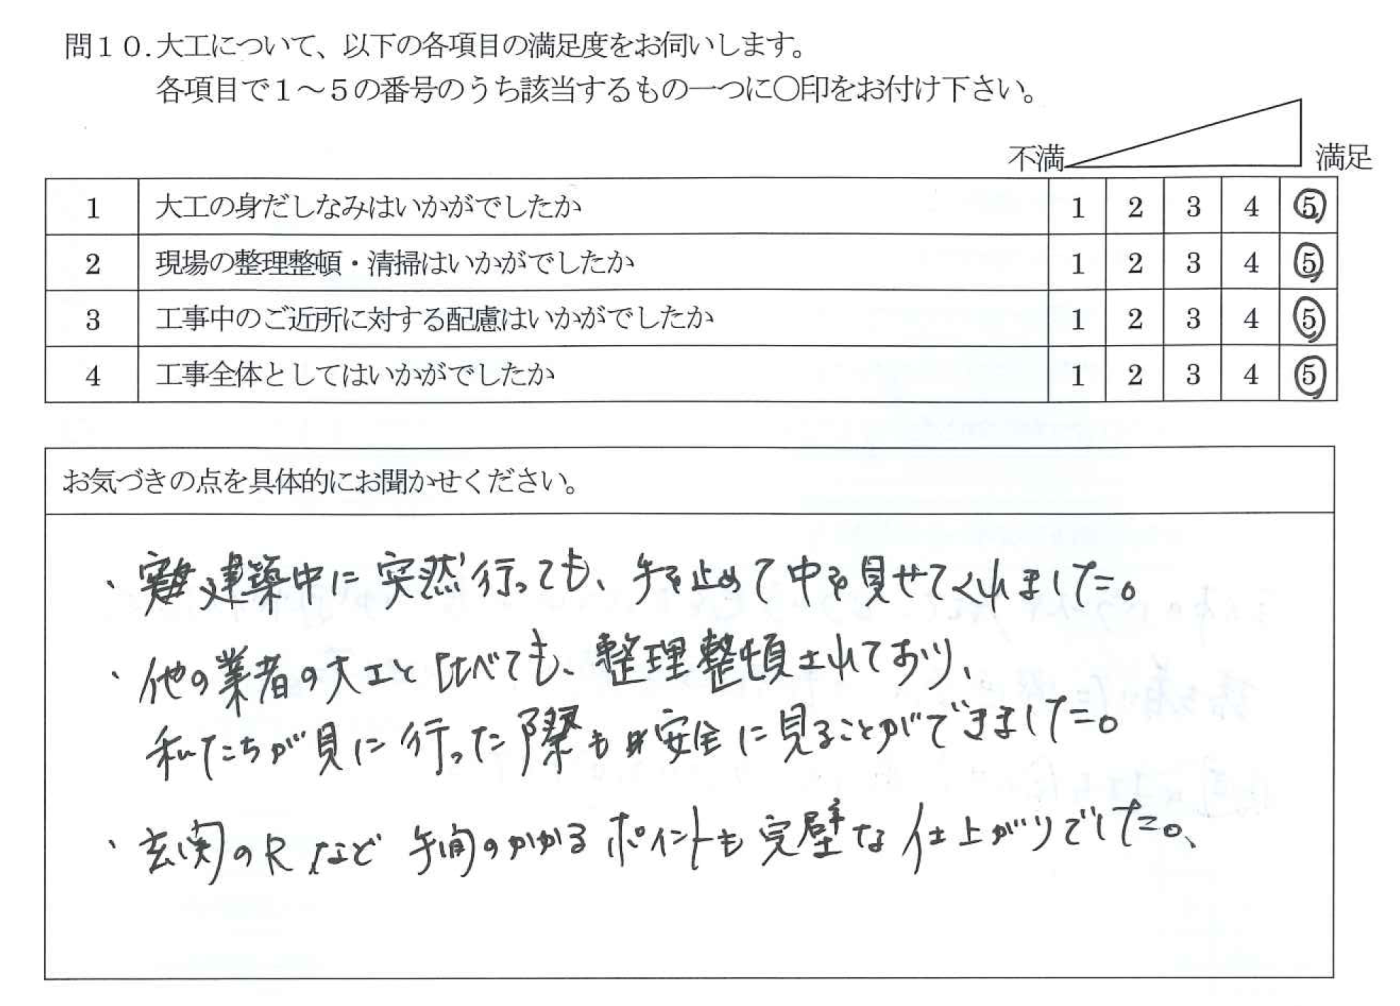 問１０.大工について、以下の各項目の満足度をお伺いします。
各項目で１～５の番号のうち該当するもの一つに〇印をお付け下さい。
不満 満足
1 大工の身だしなみはいかがでしたか 1 2 3 4 5
2 現場の整理整頓・清掃はいかがでしたか 1 2 3 4 5
3 工事中のご近所に対する配慮はいかがでしたか 1 2 3 4 5
4 工事全体としてはいかがでしたか 1 2 3 4 5
お気づきの点を具体的にお聞かせください。
・建築中に突然行っても、手を止めて中を見せてくれました。
・他の業者の大工と比べても、整理整頓されており、
私たちが見に行った際も安全に見ることができました。
・玄関のRなど手間のかかるポイントも完璧な仕上がりでした。